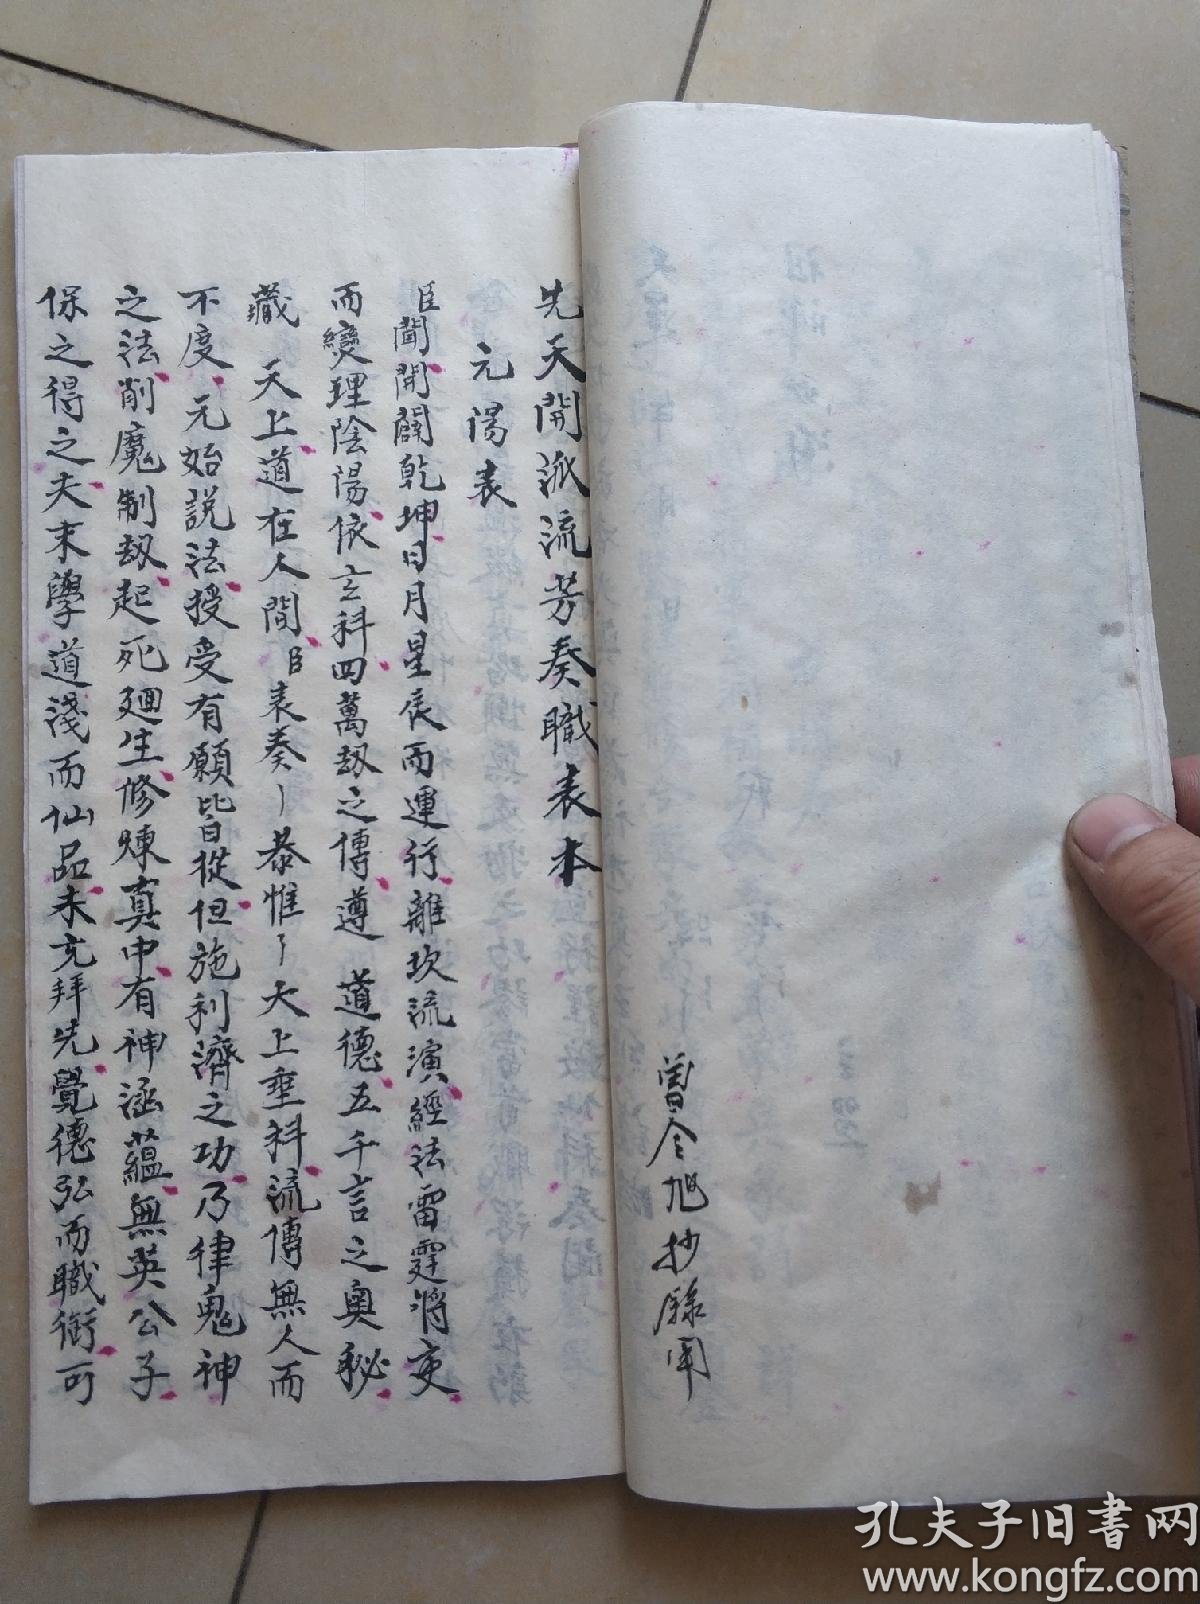 曾令旭抄録用
先天開派流芳奏職表本
元陽表
臣聞開闢乾坤日月星辰而運行離坎流演經法雷霆將吏
而變理陰陽依玄科四萬劫之傳遵 道德五千言之奧秘
藏 天上道在人間臣表奏 恭惟 大上垂科流傳無人而
不度 元始説法授受有願皆從但施利濟之功乃律鬼神
之法削魔制劫起死廻生修煉真中有神涵蘊無英公子
保之得之夫末學道淺而仙品未充拜先覺德弘而職銜可
孔夫子旧書网
www.kongfz.com